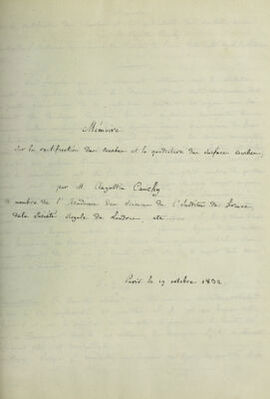 Mémoire
sur la rectification des courbes et la quadrature des surfaces courbes,
par M. Augustin Cauchy
membre de l'Académie des sciences de l'Institut de France,
de la Société Royale de Londres, etc
Paris le 19 octobre 1832